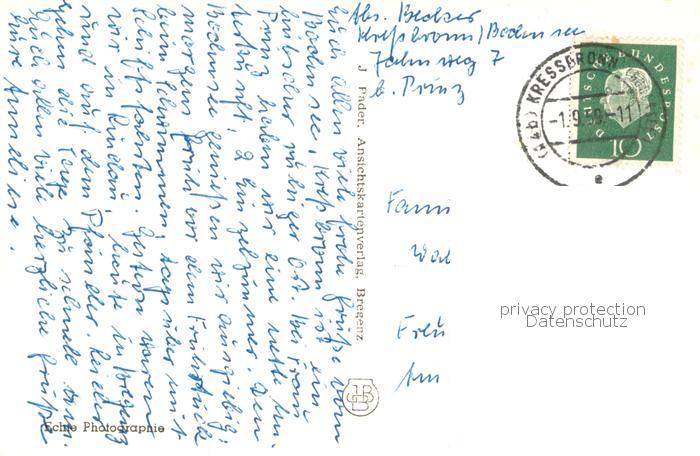 Abs. Becker
Kreßbronn/Bodensee
Jahnweg 7
b. Prinz
DEUTSCHE BUNDESPOST
10
(14b) KRESSBRONN
-1.9.59.-11
e
Fami
Wal
Freu
Am
privacy protection
Datenschutz
J. Pader, Ansichtskartenverlag, Bregenz
Echte Photographie
Euch allen viele frohe Grüße vom
Bodensee. Kreßbronn ist ein
hübscher ruhiger Ort. Bei Frau
Prinz haben wir eine nette Un-
terkunft, 2 Einzelzimmer. Den
Bodensee genießen wir ausgiebig:
morgens früh vor dem Frühstück
beim Schwimmen, tagsüber mit
Schiffsfahrten. Gestern waren
wir in Lindau, heute in Bregenz
und auf dem Pfänder. Leider
gehen die Tage zu schnell rum.
Euch allen viele herzliche Grüße
Eure Anneliese.